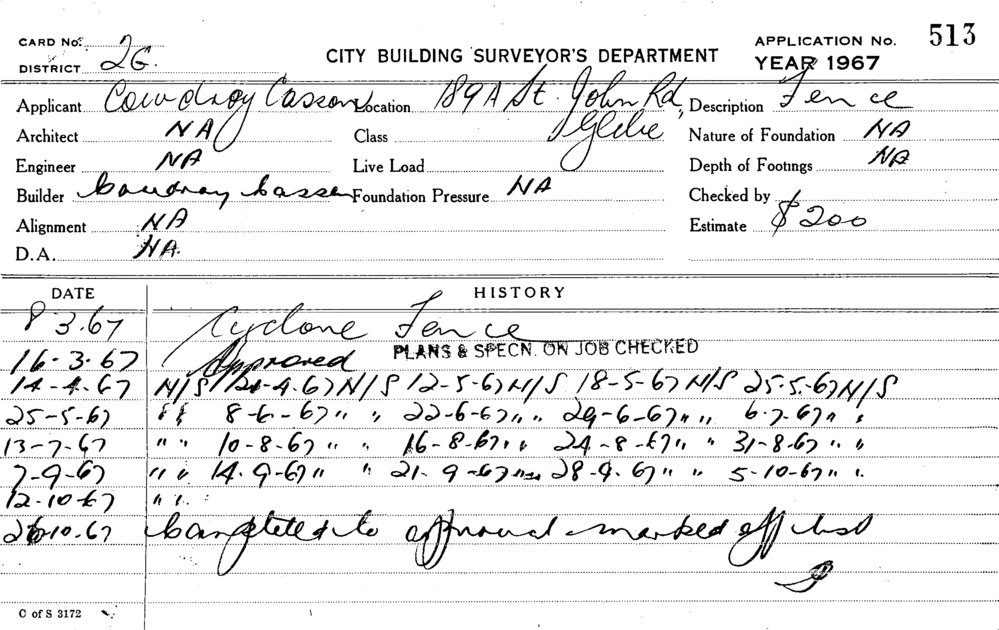 CARD No. 2G. CITY BUILDING SURVEYOR'S DEPARTMENT APPLICATION No. 513
DISTRICT YEAR 1967
Applicant Cowdroy Casson Location 189A St. John Rd, Glebe Description Fence
Architect NA Class Nature of Foundation NA
Engineer NA Live Load Depth of Footings NA
Builder Cowdroy Casson Foundation Pressure NA Checked by
Alignment NA Estimate $200
D.A. NA.
DATE HISTORY
8 3.67 Cyclone Fence
16-3-67 Approved PLANS & SPECN. ON JOB CHECKED
14-4-67 N/S 21-4.67 N/S 12-5-67 N/S 18-5-67 N/S 25-5-67 N/S
25-5-67 " " 8-6-67 " " 22-6-67 " " 29-6-67 " " 6-7-67 " "
13-7-67 " " 10-8-67 " " 16-8-67 " " 24-8-67 " " 31-8-67 " "
7-9-67 " " 14-9-67 " " 21-9-67 " " 28-9-67 " " 5-10-67 " "
12-10-67 " "
26-10.67 Completed to approval marked off list
C of S 3172